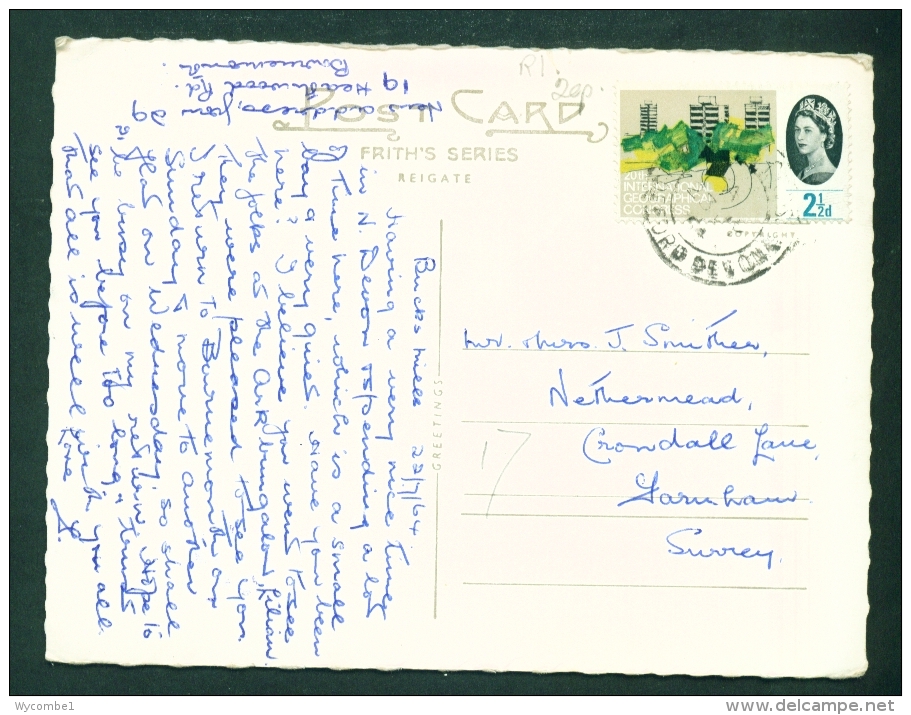 POST CARD
FRITH'S SERIES
REIGATE
20TH
INTERNATIONAL
GEOGRAPHICAL
CONGRESS
2½d
COPYRIGHT
DEVON
GREETINGS
Mr. & Mrs. J. Smither,
Nethermead,
Crondall Lane,
Farnham.
Surrey.
17
Bucks Mills 22/7/64
Having a very nice time
in N. Devon
I time here, which is a small
Bay & very quiet. Have you been
here? I believe you went to see
the folks at the Ark bungalow, Lilian.
They were pleased to see you.
I return to Bournemouth on
Sunday & move to another
flat on Wednesday, so shall
be busy on my return. Hope to
see you before too long, & trust
that all is well with you all.
Love
New address for you
19 Heathwood Rd.
Bournemouth
Wycombe1
www.delcampe.net